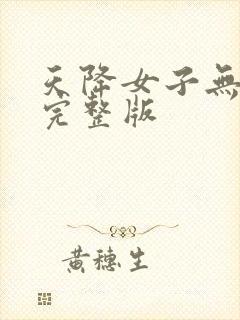 天降女子無
完整版
黃穗生